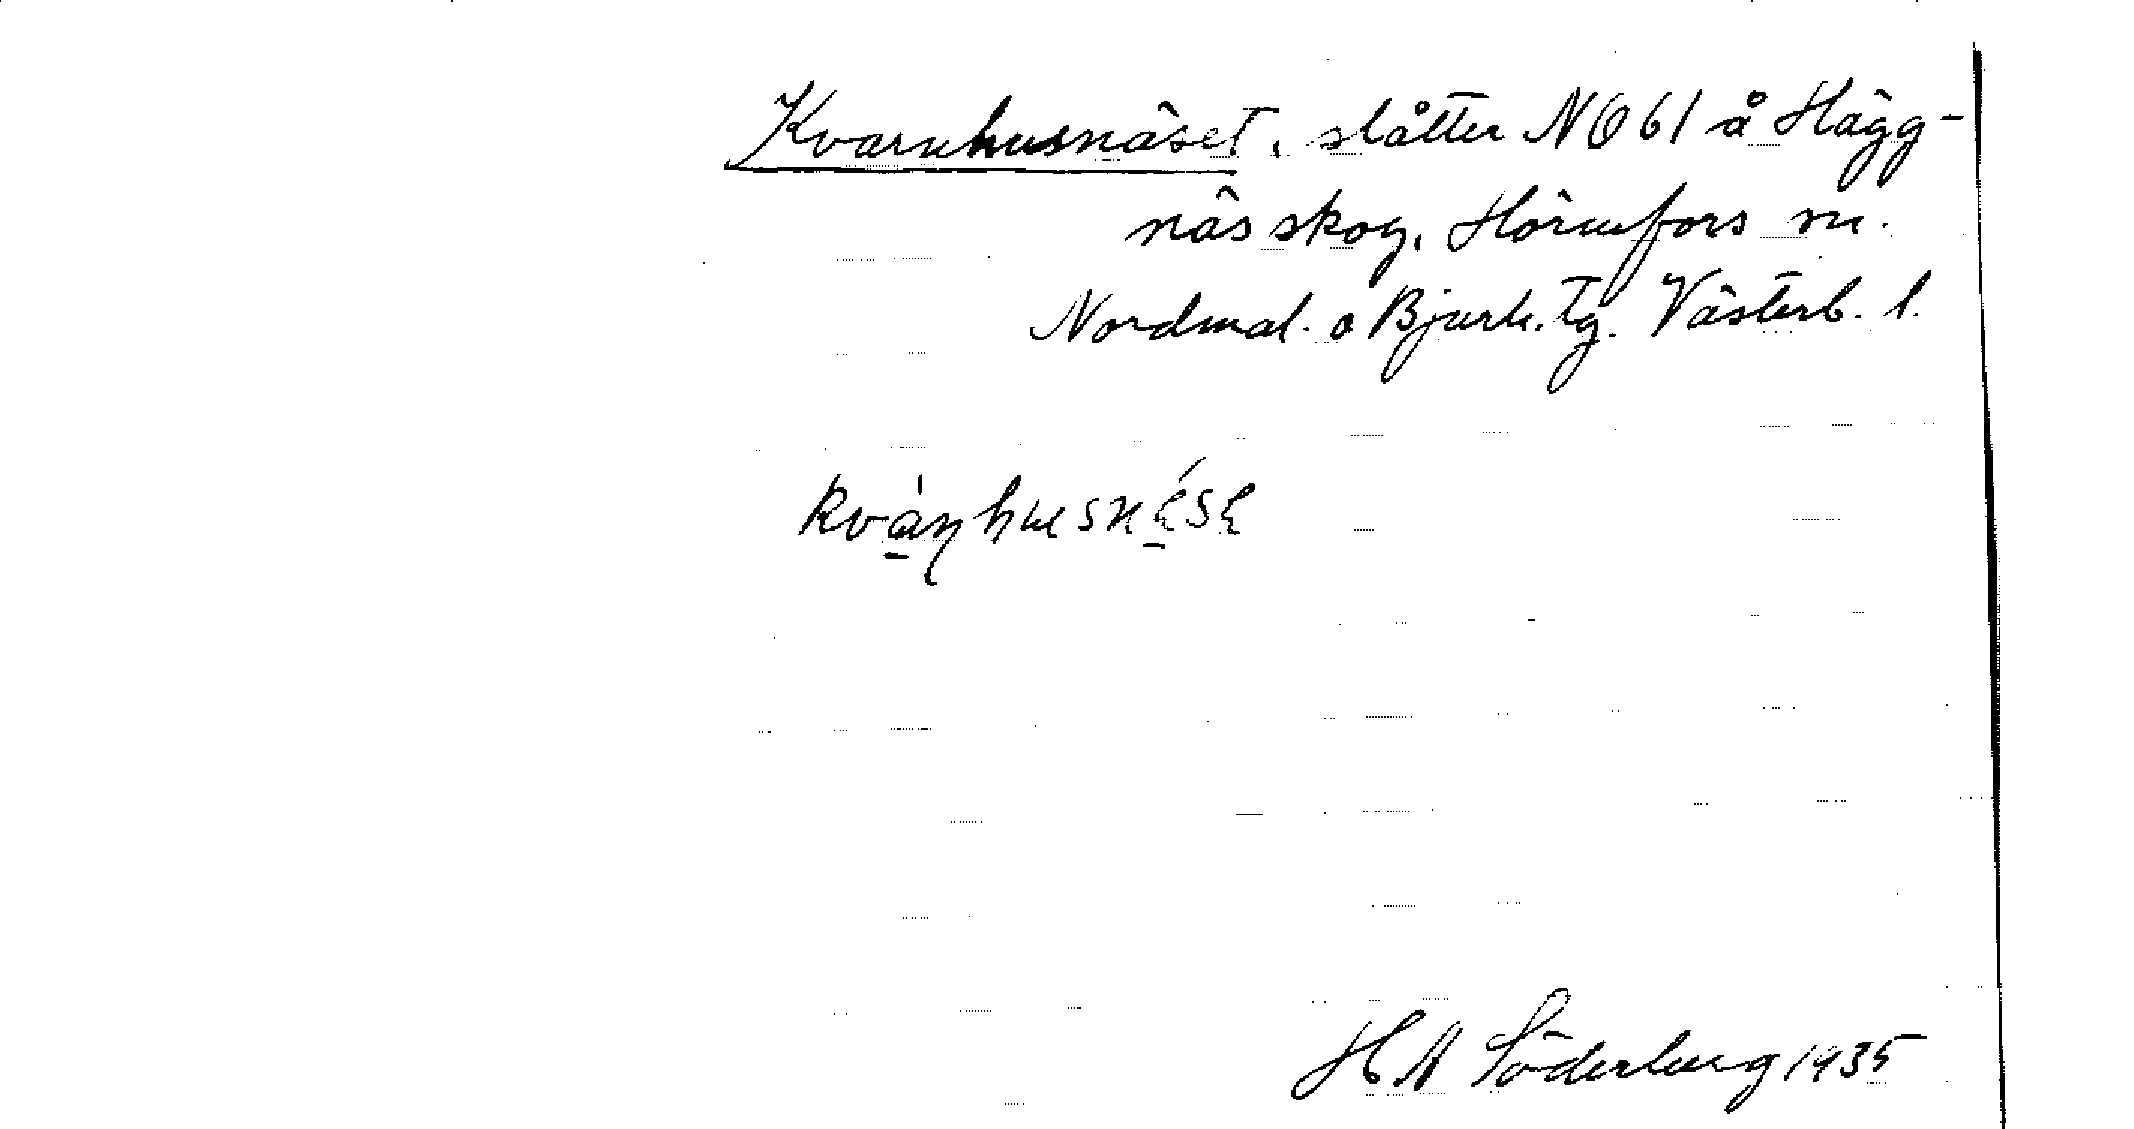 Kvarnhusnäset, slåtter NO 61 å Hägg-
näs skog, Hörnefors sn.
Nordmal. o Bjurh. tg. Västerb. l.
kvàṇhusnésę
H A Söderberg 1935